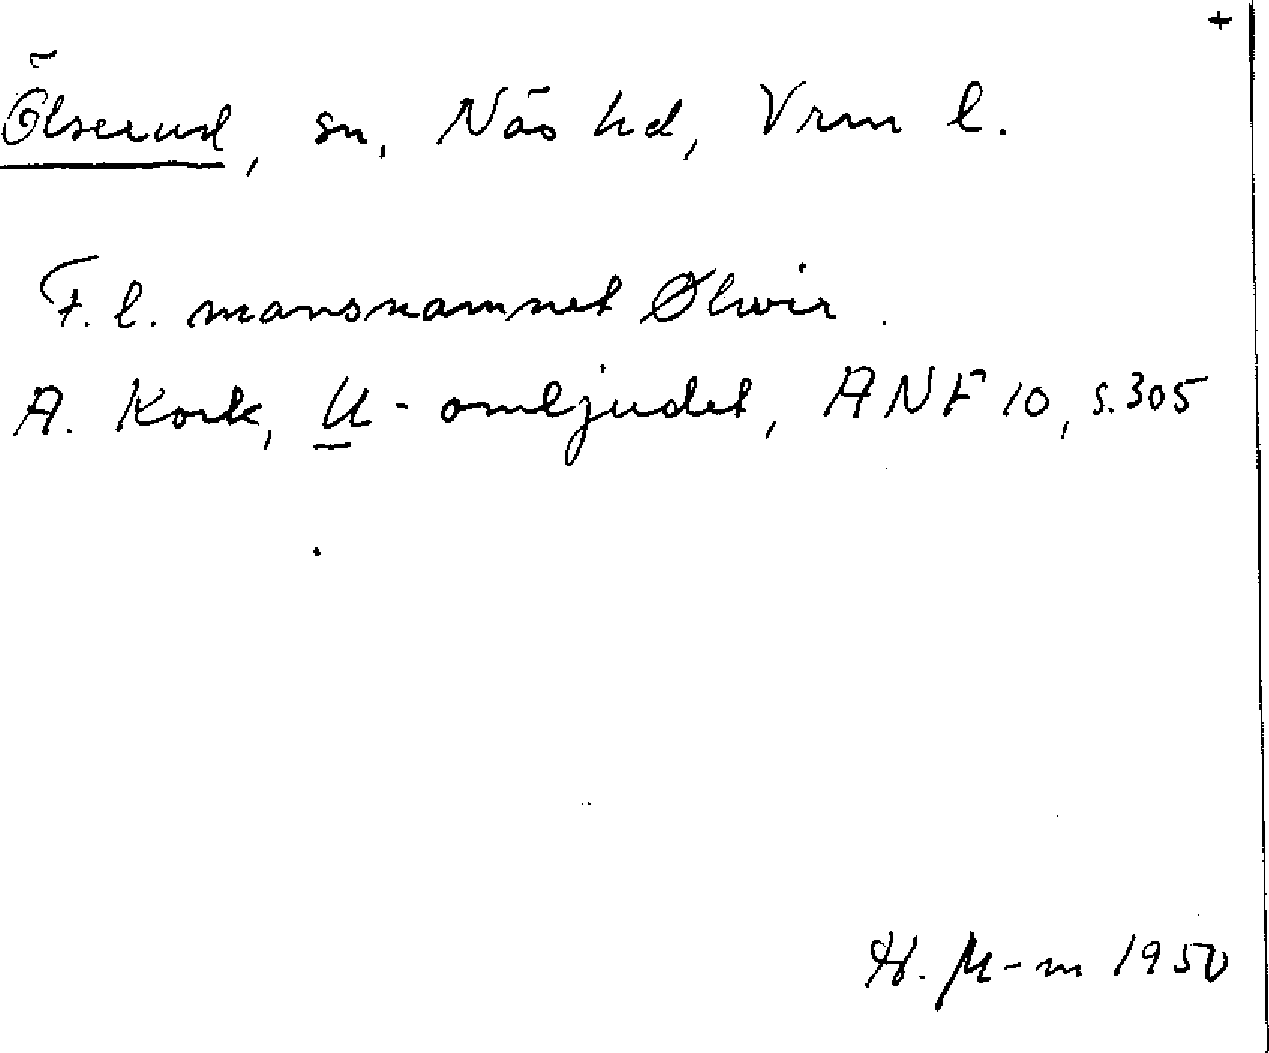 +
Ölserud, sn, Näs hd, Vrm l.
F. l. mansnamnet Ølvir.
A. Kock, U-omljudet, ANF 10, s. 305
H. M-m 1950